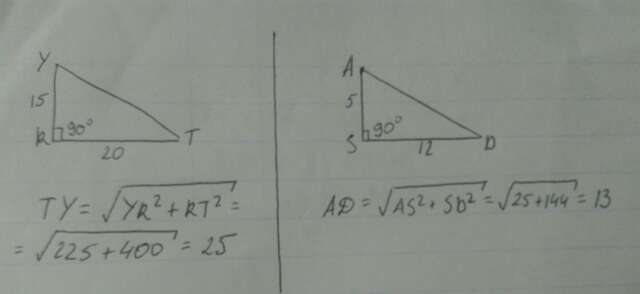 Y
15
R
90°
T
20
TY = √(YR² + RT²) =
= √(225 + 400) = 25
A
5
S
90°
D
12
AD = √(AS² + SD²) = √(25 + 144) = 13